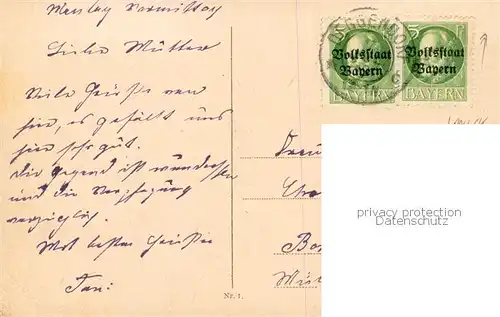 Montag Vormittag
Liebe Mutter
Viele Grüsse von
hier, es gefällt uns
hier sehr gut.
Die Gegend ist wunder
und die Verpflegung
vorzüglich.
Mit besten Grüssen
DEGGENDORF
Volksstaat
Bayern
BAYERN
5
Volksstaat
Bayern
BAYERN
privacy protection
Datenschutz
Nr. 1.